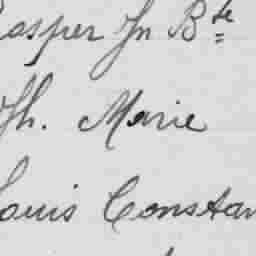 Casper Jn Bte
Jh. Marie
Louis Constan